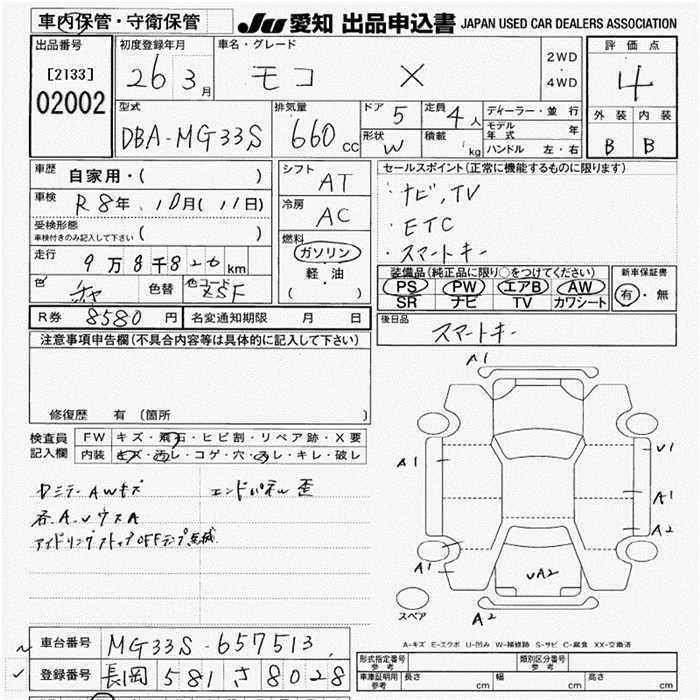 車内保管・守衛保管
JU 愛知 出品申込書 JAPAN USED CAR DEALERS ASSOCIATION
出品番号
[2133]
02002
初度登録年月
26 3月
車名・グレード
モコ X
2WD
・
4WD
評価点
4
外装 内装
B B
型式
DBA-MG33S
排気量
660cc
ドア 5
定員 4人
形状 W
積載 kg
ディーラー・並行
モデル年式 年
ハンドル 左・右
車歴 自家用・( )
車検 R8年 10月(11日)
受検形態
車検付きのみ記入して下さい ( )
走行 9万8千820km
色 チャ 色替 色コード ZSF
シフト AT
冷房 AC
燃料
ガソリン
軽・油
( )
セールスポイント(正常に機能するものに限ります)
・ナビ,TV
・ETC
・スマートキー
装備品(純正品に限り○をつけてください)
PS PW エアB AW
SR ナビ TV カワシート
新車保証書
有・無
R券 8580円 名変通知期限 月 日
後日品 スマートキー
注意事項申告欄(不具合内容等は具体的に記入して下さい)
修復歴 有(箇所 )
検査員記入欄
FW キズ・飛石・ヒビ割・リペア跡・X要
内装 キズ・汚レ・コゲ・穴・スレ・キレ・破レ
エンドパネル歪
各A.UウスA
アイドリングストップOFFランプ点滅
A1
A1
U1
A1
A2
A1
UA2
A2
スペア
A-キズ E-エクボ U-凹み W-補修跡 S-サビ C-腐食 XX-交換済
車台番号 MG33S-657513
登録番号 長岡 581 さ 8028
形式指定番号 参考
類別区分番号 参考
車庫証明用 参考 長さ cm 幅 cm 高さ cm